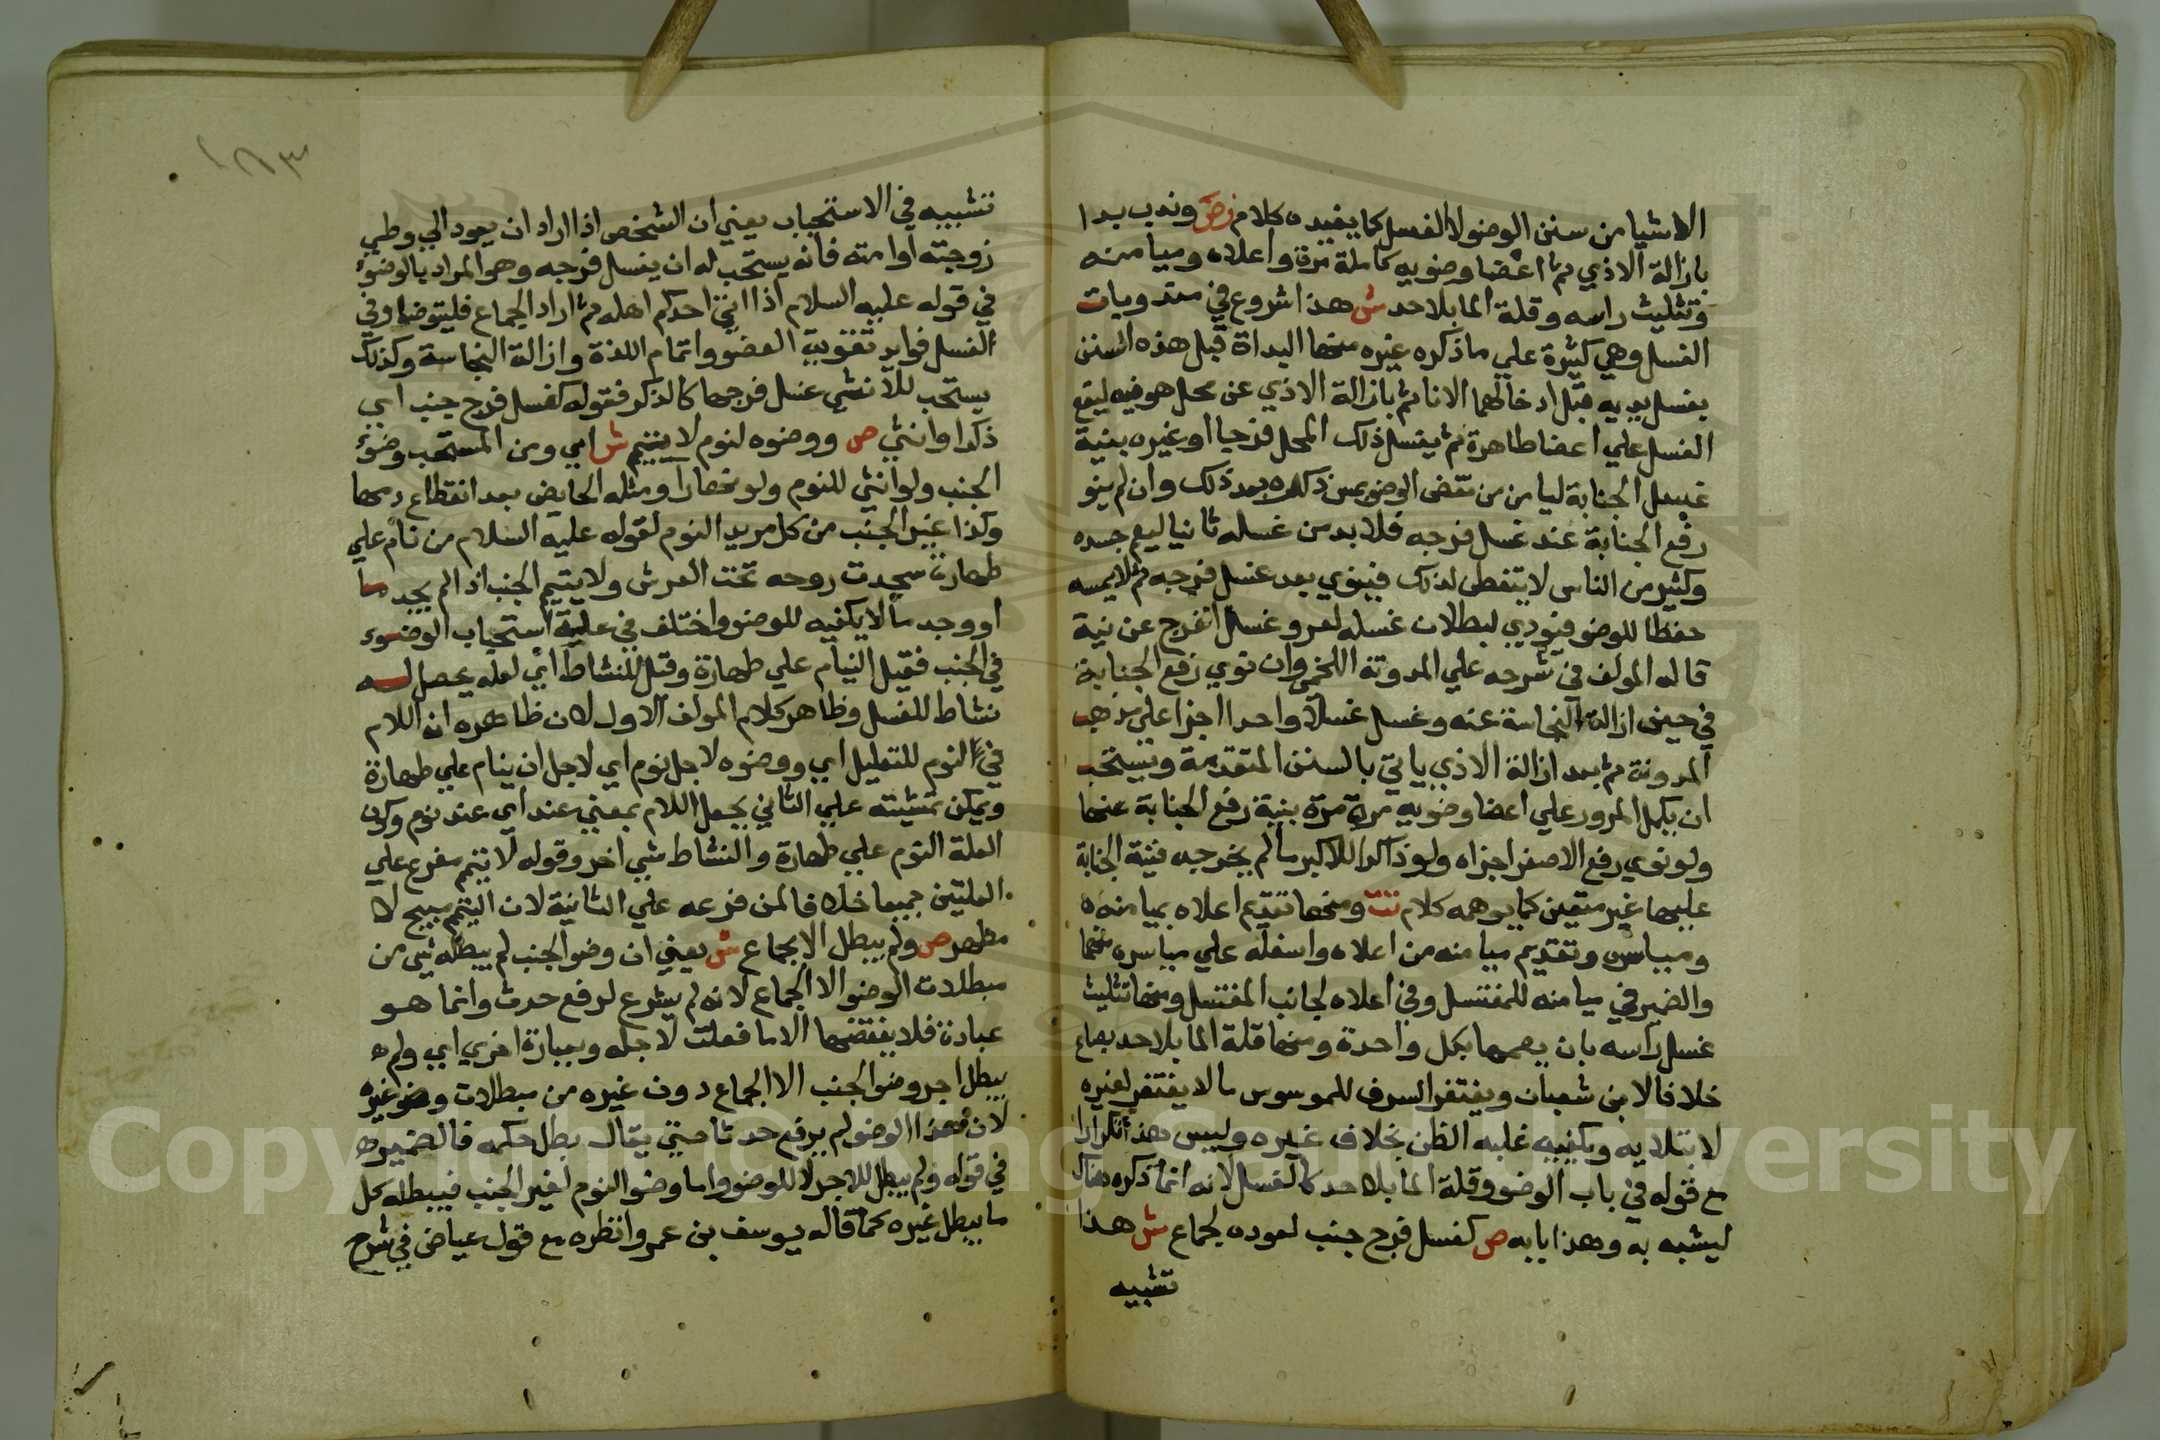 الاشيا من سنن الوضو لا الغسل كما يفيده كلام ص وندب بدا
بازالة الاذي ثم اعضا وضويه كاملة مرة واعلاه وميامنه
وتثليث راسه وقلة الما بلا حد ش هذا شروع في مندوبات
الغسل وهي كثيرة علي ما ذكره غيره منها البداة قبل هذه السنن
بغسل يديه قبل ادخالهما الانا ثم بازالة الاذي عن محل هو فيه ليقع
الغسل علي اعضا طاهرة ثم يغسل ذلك المحل فرجا او غيره بنية
غسل الجنابة ليامن من نقض الوضو بمس ذكره بعد ذلك وان لم ينو
رفع الجنابة عند غسل فرجه فلا بد من غسله ثانيا ليعم جسده
وكثير من الناس لا يتفطن لذلك فينوي بعد غسل فرجه ثم لا يمسه
حفظا للوضو فيودي لبطلان غسله لعرو غسل الفرج عن نية
قاله المولف في شرحه علي المدونة اللخمي وان نوي رفع الجنابة
في حين ازالة النجاسة عنه وغسل غسلا واحدا اجزا علي مذهب
المدونة ثم بعد ازالة الاذي ياتي بالسنن المتقدمة ويستحب
ان يكمل المرور علي اعضا وضويه مرة مرة بنية رفع الجنابة عنها
ولو نوي رفع الاصغر اجزاه ولو ذاكرا للاكبر ما لم يخرجه فنية الجنابة
عليها غير متعين كما يوهمه كلام تت ومنها تقديم اعلاه بميامنه
ومياسره وتقديم ميامنه من اعلاه واسفله علي مياسره منهما
والضمير في ميامنه للمغتسل وفي اعلاه لجانب المغتسل ومنها تثليث
غسل راسه بان يعمها بكل واحدة ومنها قلة الما بلا حد بصاع
خلافا لابن شعبان ويغتفر السرف للموسوس ما لا يغتفر لغيره
لابتلايه ويكفيه غلبه الظن بخلاف غيره وليس هذا تكرارا
مع قوله في باب الوضو وقلة الما بلا حد كالغسل لانه انما ذكره هناك
ليشبه به وهذا بابه ص كغسل فرج جنب لعوده لجماع ش هذا
تشبيه
١٨٣
تشبيه في الاستحباب يعني ان الشخص اذا اراد ان يعود الي وطي
زوجته او امته فانه يستحب له ان يغسل فرجه وهو المراد بالوضوء
في قوله عليه السلام اذا اتي احدكم اهله ثم اراد الجماع فليتوضا وفي
الغسل فوايد تقوية العضو واتمام اللذة وازالة النجاسة وكذلك
يستحب للانثي غسل فرجها كالذكر فقوله كغسل فرج جنب اي
ذكرا وانثي ص ووضوه لنوم لا يتيمم ش اي ومن المستحب وضوء
الجنب ولو انثي للنوم ولو نهارا ومثله الحايض بعد انقطاع دمها
وكذا غير الجنب من كل مريد النوم لقوله عليه السلام من نام علي
طهارة سجدت روحه تحت العرش ولا يتيمم الجنب اذا لم يجد ما
او وجد ما لا يكفيه للوضو واختلف في علية استحباب الوضوء
في الجنب فقيل لينام علي طهارة وقيل للنشاط اي لعله يحصل له
نشاط للغسل وظاهر كلام المولف الاول لان ظاهره ان اللام
في النوم للتعليل اي ووضوه لاجل نوم اي لاجل ان ينام علي طهارة
ويمكن تمشيته علي الثاني بجعل اللام بمعني عند اي عند نوم وكون
العلة النوم علي طهارة والنشاط شي اخر وقوله لا تيمم مفرع علي
العلتين جميعا خلافا لمن فرعه علي الثانية لان التيمم مبيح لا
مطهر ص ولم يبطل الا بجماع ش يعني ان وضو الجنب لم يبطله شي من
مبطلات الوضو الا الجماع لانه لم يشرع لرفع حدث وانما هو
عبادة فلا ينقضها الا ما فعلت لاجله وبعبارة اخري اي ولم
يبطل اجر وضو الجنب الا الجماع دون غيره من مبطلات وضو غيره
لان هذا الوضو لم يرفع حدثا حتي يقال بطل حكمه فالضمير
في قوله ولم يبطل للاجر لا للوضو واما وضو النوم لغير الجنب فيبطله كل
ما يبطل غيره كما قاله يوسف بن عمر وانظره مع قول عياض في شرح